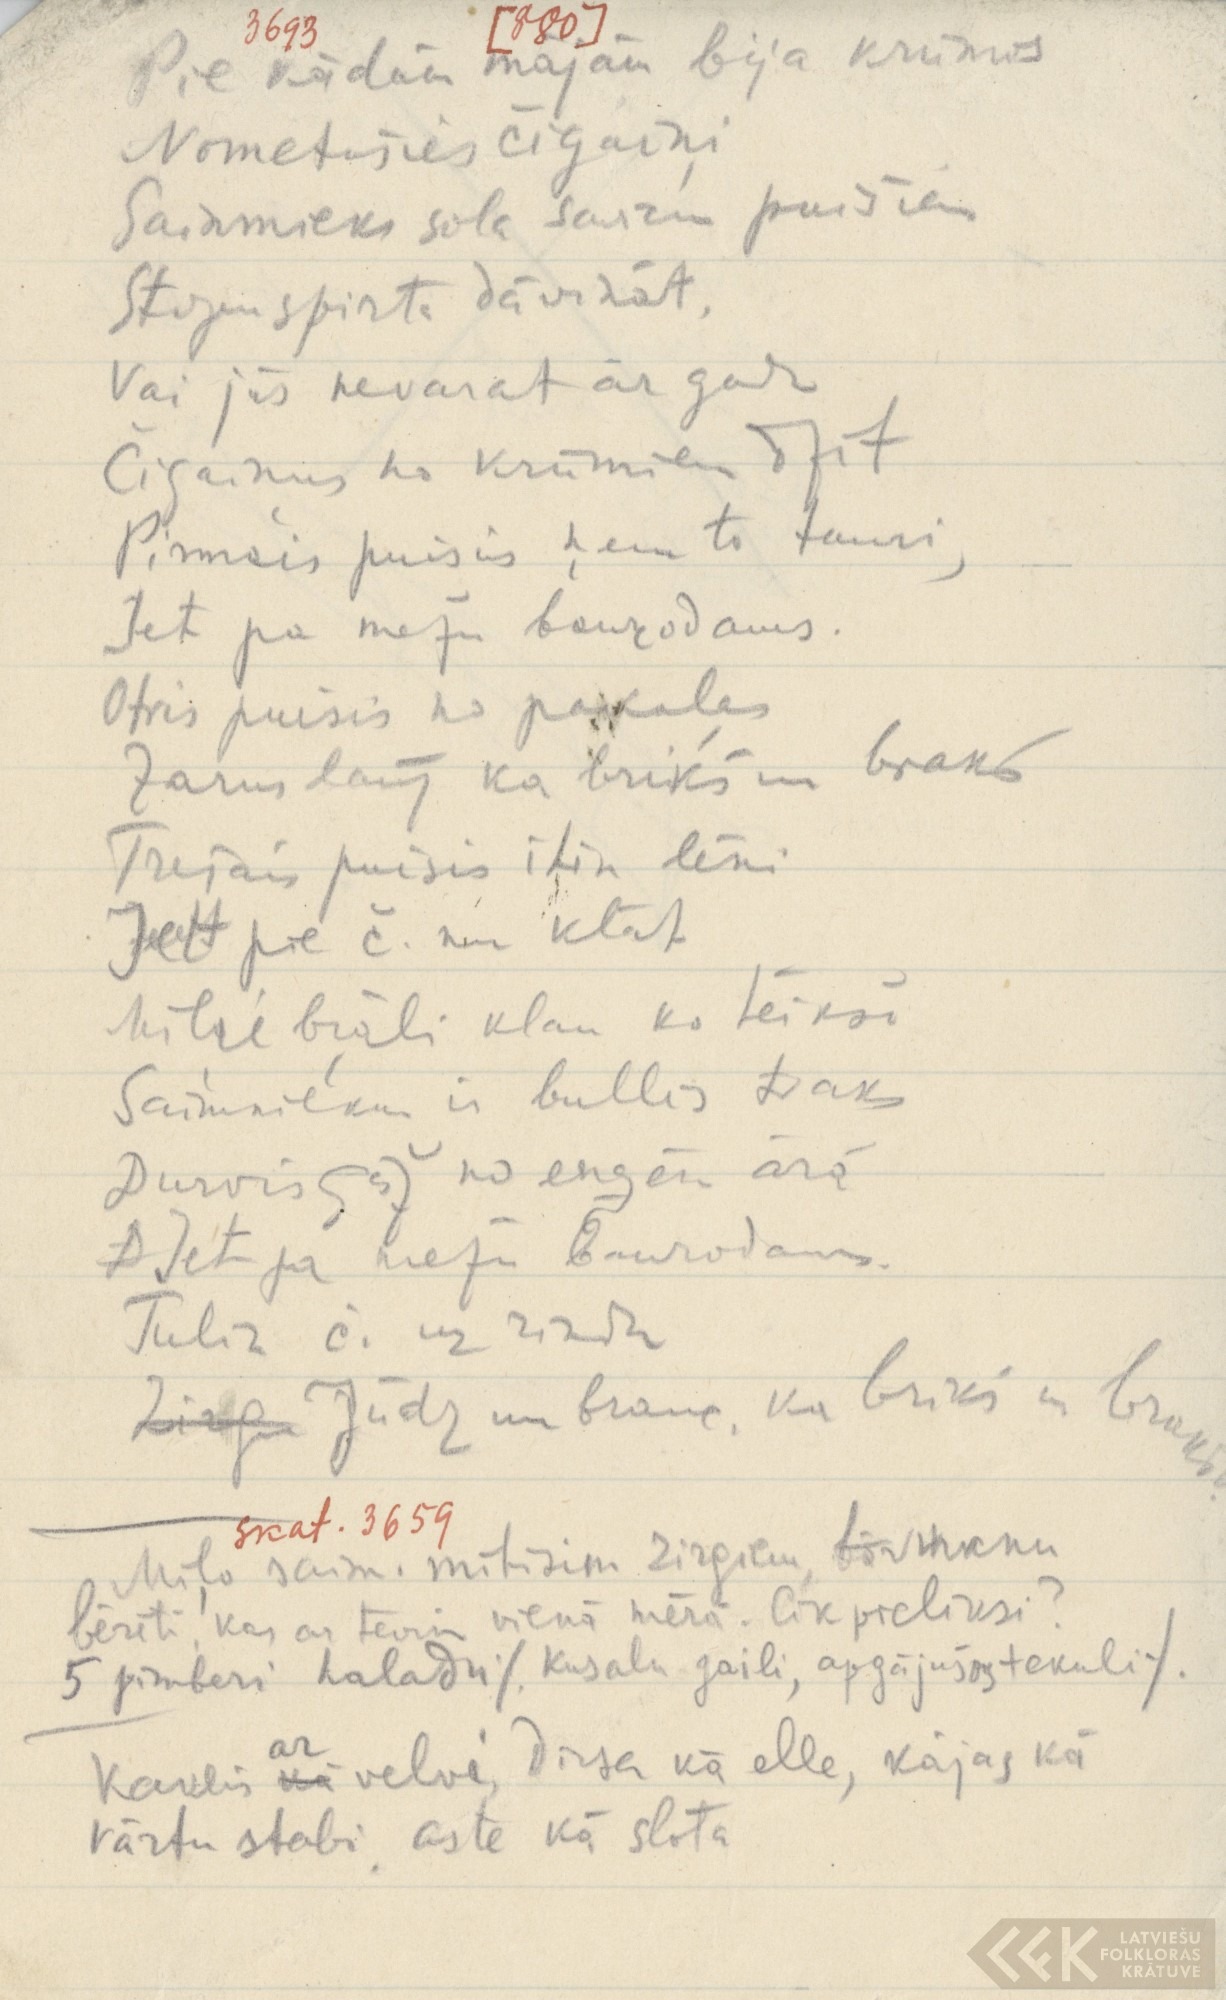 3693 [880]
Pie kādām mājām bija krūmos
Nometušies čigāiņi
Saimnieks sola saviem puišiem
Stopu spirta dāvināt.
Vai jūs nevarat ar godu
Čigainus no krūmiem dzīt
Pirmais puisis ņem to tauri,
Iet pa mežu baurodams.
Otris puisis no pakaļas
Zarus lauž ka brikš un brakš
Trešais puisis itin lēni
Iet pie č. nu klāt
Mīļie brāļi klau ko teikšo
Saimniekam ir bullis traks
Durvis gāž no engēm ārā
Iet pa mežu baurodams.
Tulin č. uz rindu
Zirgu Jūdz un brauc, ka brikš un brakš.
skat. 3659
Mīļo saim. mītisim zirgiem,
bērīti, kas ar tevim vienā mērā. Cik pieliksi?
5 pimberi naladri/. Kusalu gaili, apgājušos tekuli/.
ar
Kakls kā velvē, dirsa kā elle, kājas kā
vārtu stabi, aste kā slota
LATVIEŠU
FOLKLORAS
KRĀTUVE